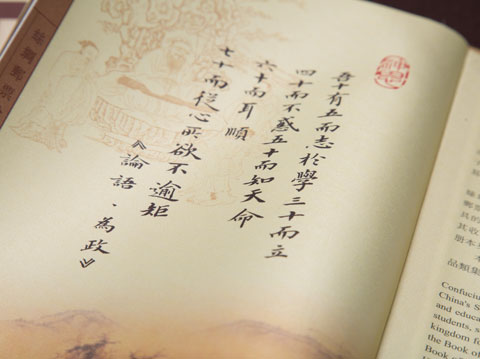 吾十有五而志於學三十而立
四十而不惑五十而知天命
六十而耳順
七十而從心所欲不逾矩
《論語·為政》
絲綢郵票
品類集
Confuciu
China's S
and educa
students, s
kingdom fo
the Book of
Book of